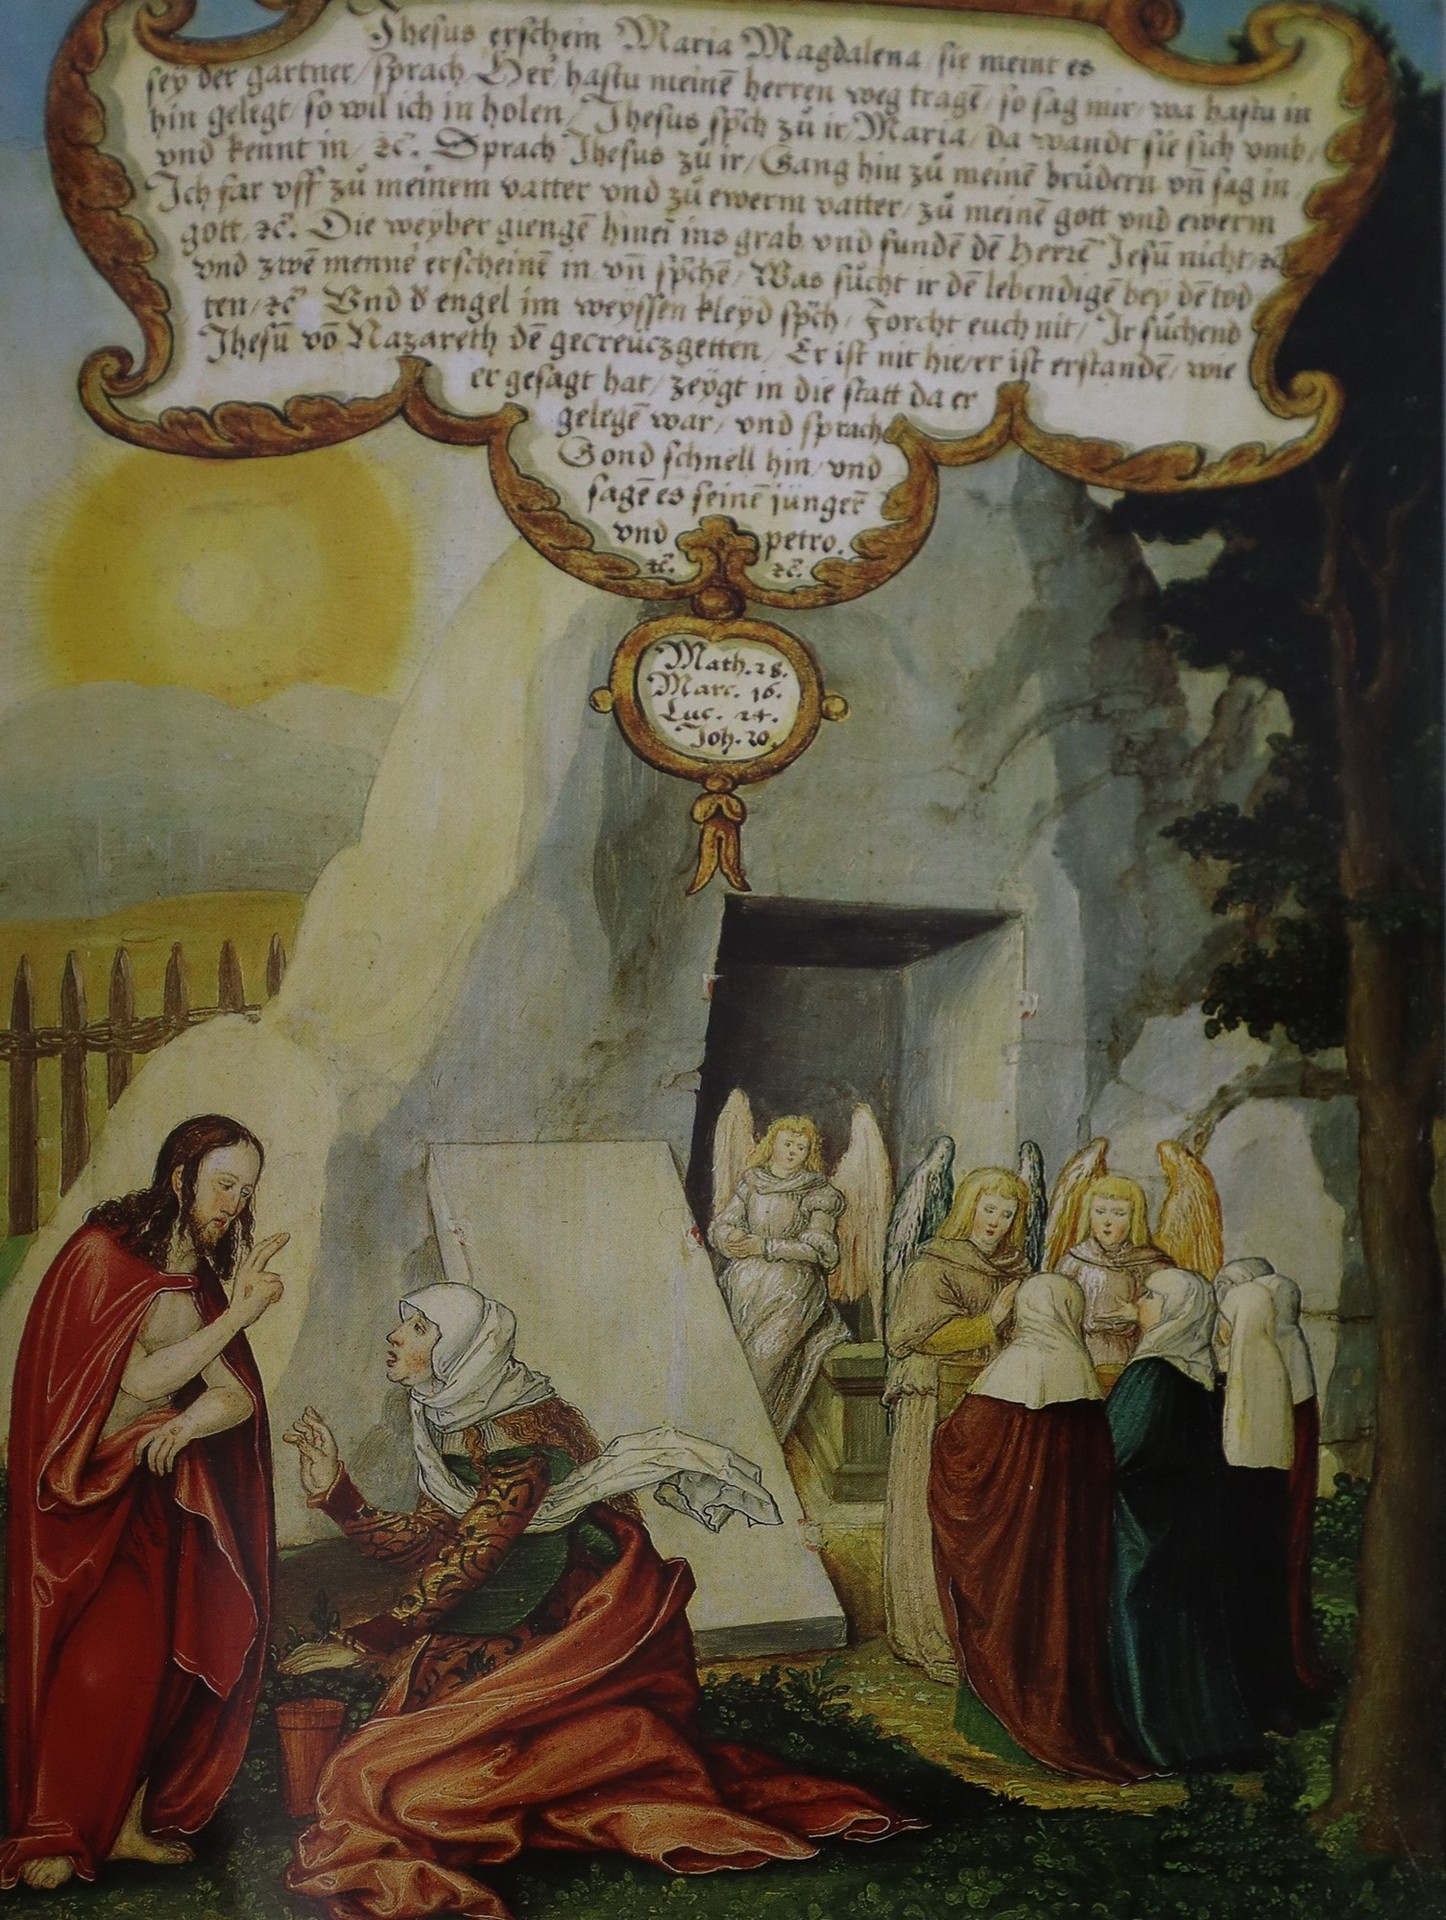 Jhesus erschein Maria Magdalena / sie meint es
sey der gartner / sprach / Her / hastu meinē herren weg tragē / so sag mir / wa hastu in
hin gelegt / so wil ich in holen / Jhesus spch zů ir / Maria / da wandt sie sich vmb /
vnd kennt in / ꝛc̄. Sprach Jhesus zů ir / Gang hin zů meinē brůdern vn̄ sag in /
Ich far vff zů meinem vatter vnd zů ewerm vatter / zů meinē gott vnd ewerm
gott / ꝛc̄. Die weyber giengē hinei ins grab vnd fundē dē Herrē Jesū nicht / ꝛc̄
vnd zwē menne erscheinē in vn̄ spchē / Was sůcht ir dē lebendigē bey dē tod
ten / ꝛc̄ Vnd d engel im weyssen kleyd spch / Forcht euch nit / Ir sůchend
Jhesū vō Nazareth dē gecreuczgetten / Er ist nit hie / er ist erstandē / wie
er gesagt hat / zeygt in die statt da er
gelegē war / vnd sprach
Gond schnell hin / vnd
sagē es seinē jüngerē
vnd petro.
ꝛc̄. ꝛc̄.
Math. 28.
Marc. 16.
Luc. 24.
Joh. 20.